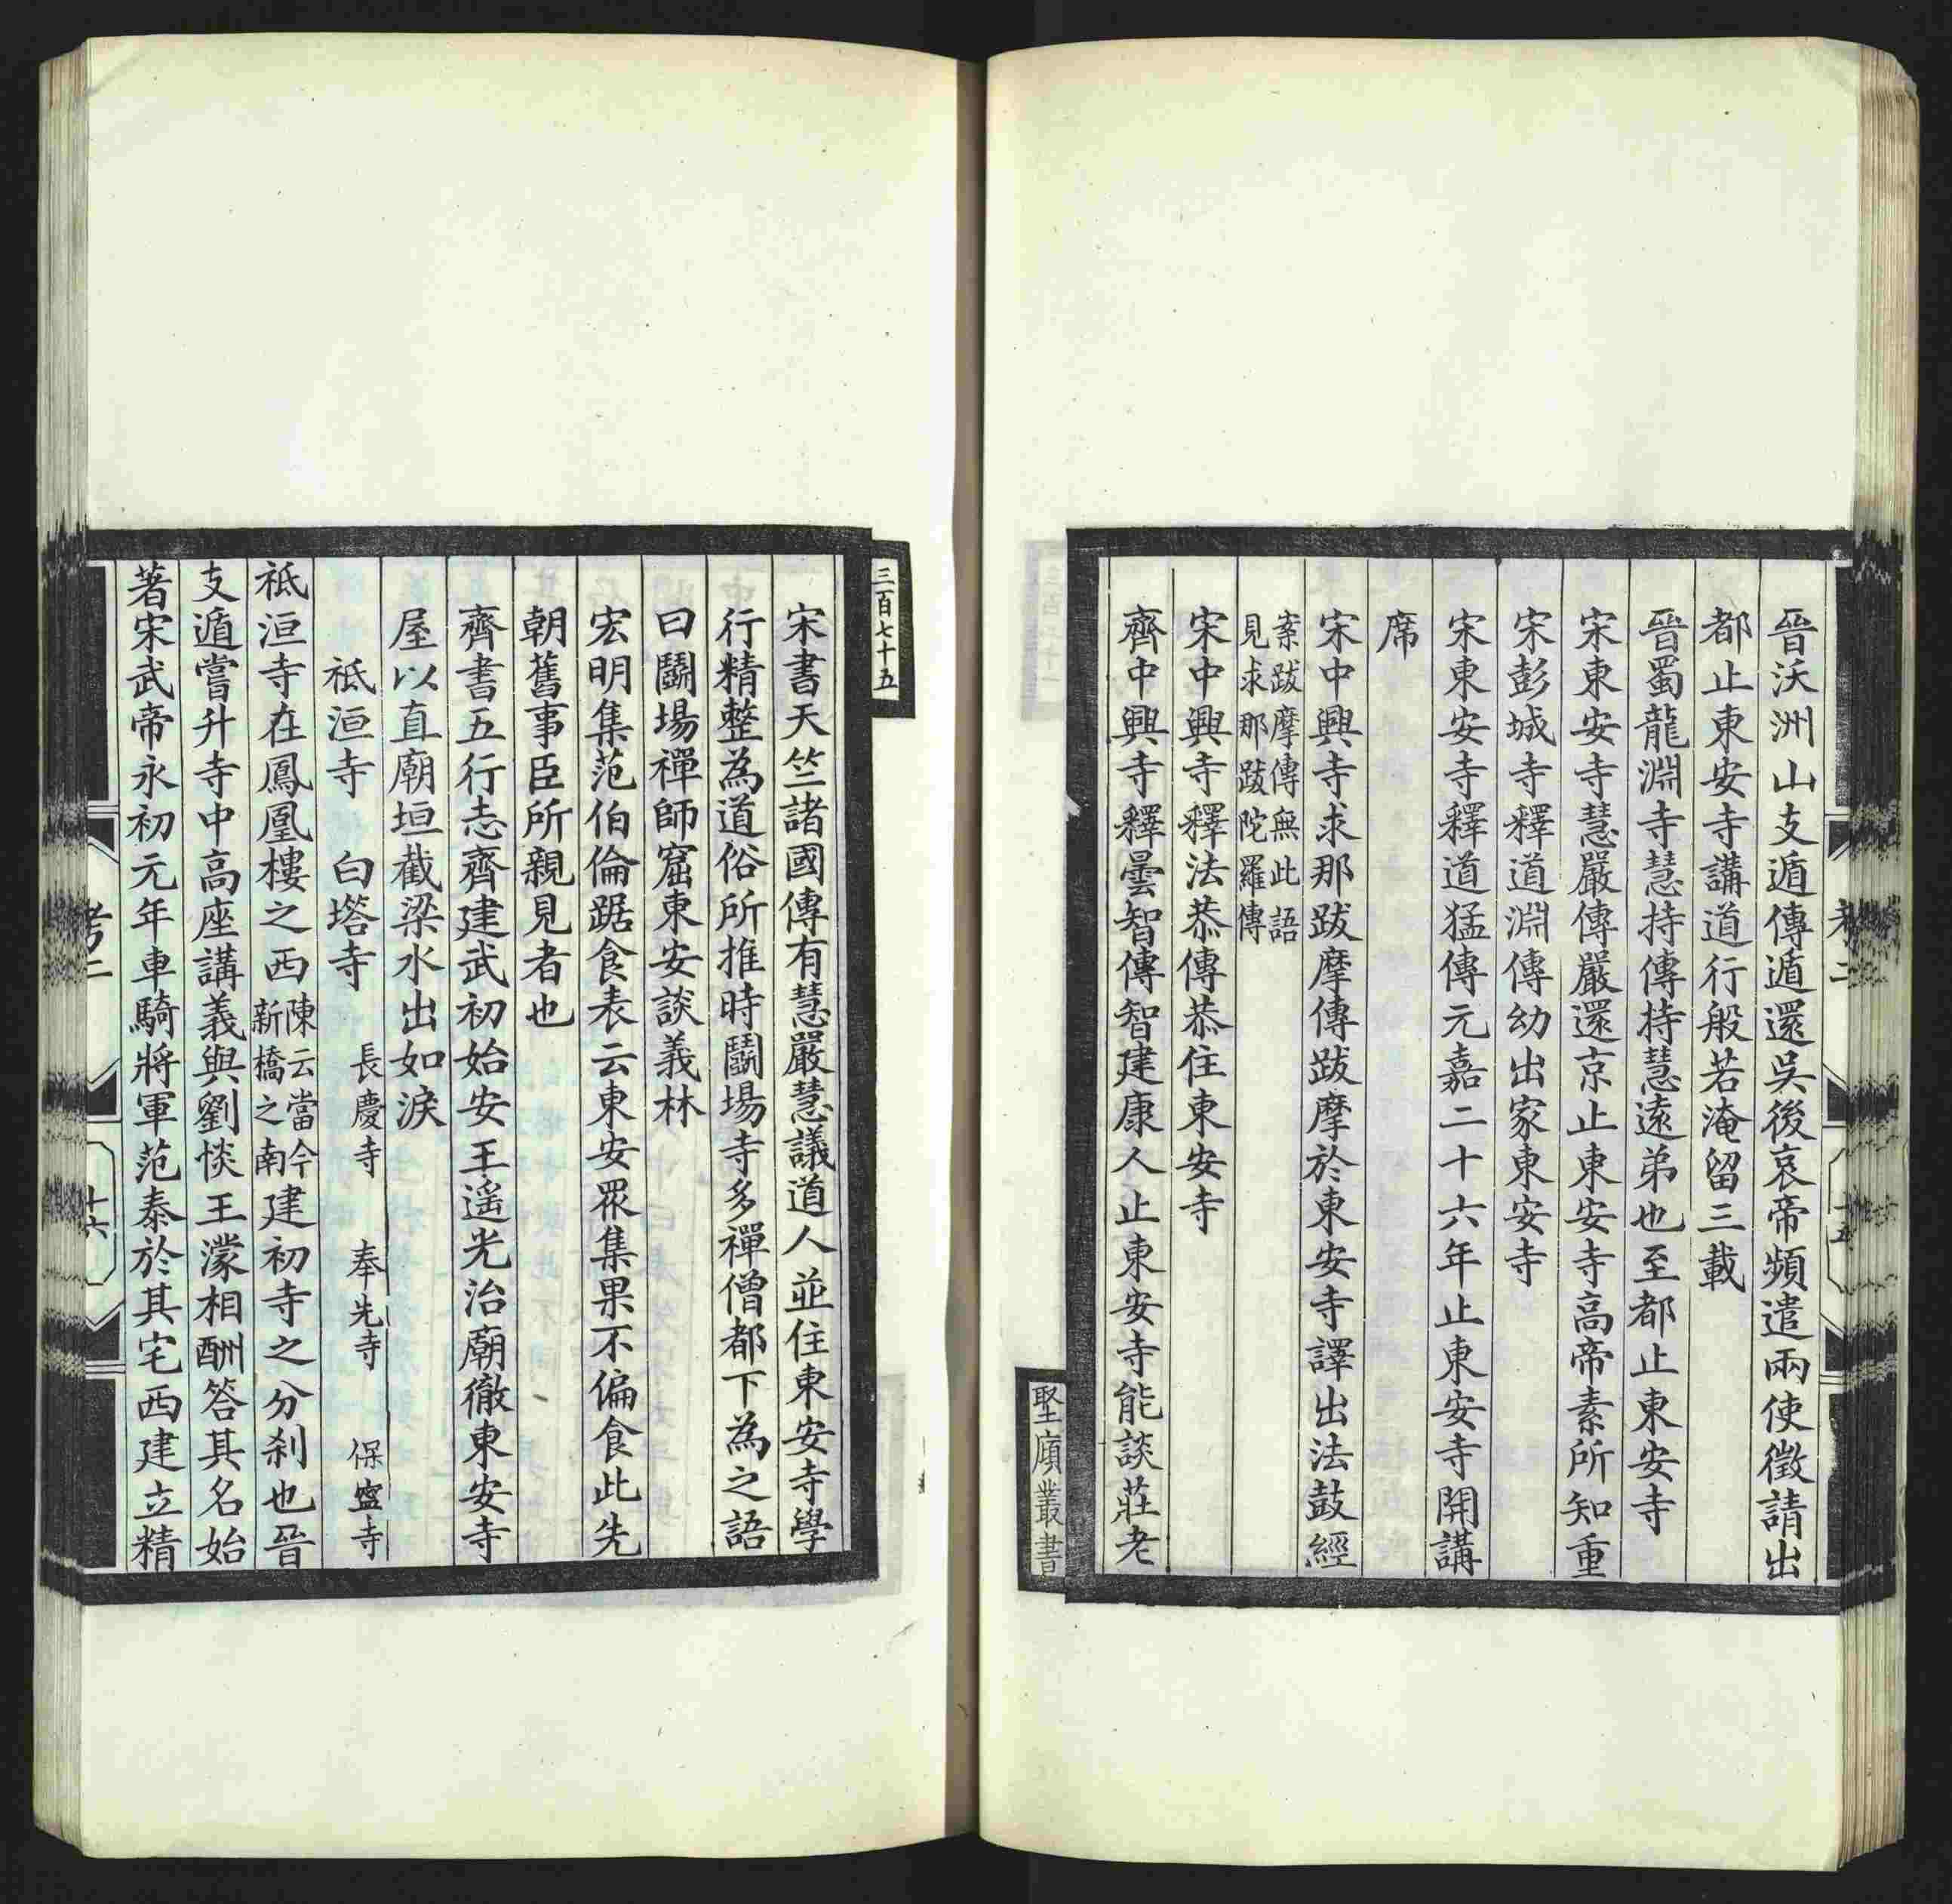 晉沃洲山支遁傳遁還吳後哀帝頻遣兩使徵請出
都止東安寺講道行般若淹留三載
晉蜀龍淵寺慧持傳持慧遠弟也至都止東安寺
宋東安寺慧嚴傳嚴還京止東安寺高帝素所知重
宋彭城寺釋道淵傳幼出家東安寺
宋東安寺釋道猛傳元嘉二十六年止東安寺開講
席
宋中興寺求那跋摩傳跋摩於東安寺譯出法鼓經
案跋摩傳無此語
見求那跋陀羅傳
宋中興寺釋法恭傳恭住東安寺
齊中興寺釋曇智傳智建康人止東安寺能談莊老
考二
十五
堅匏叢書
三百七十五
宋書天竺諸國傳有慧嚴慧議道人並住東安寺學
行精整為道俗所推時鬭場寺多禪僧都下為之語
曰鬭場禪師窟東安談義林
宏明集范伯倫踞食表云東安眾集果不偏食此先
朝舊事臣所親見者也
齊書五行志齊建武初始安王遙光治廟徹東安寺
屋以直廟垣截梁水出如淚
祗洹寺 白塔寺 長慶寺 奉先寺 保寧寺
祗洹寺在鳳凰樓之西陳云當今新橋之南建初寺之分剎也晉
支遁嘗升寺中高座講義與劉惔王濛相酬答其名始
著宋武帝永初元年車騎將軍范泰於其宅西建立精
考二
十六